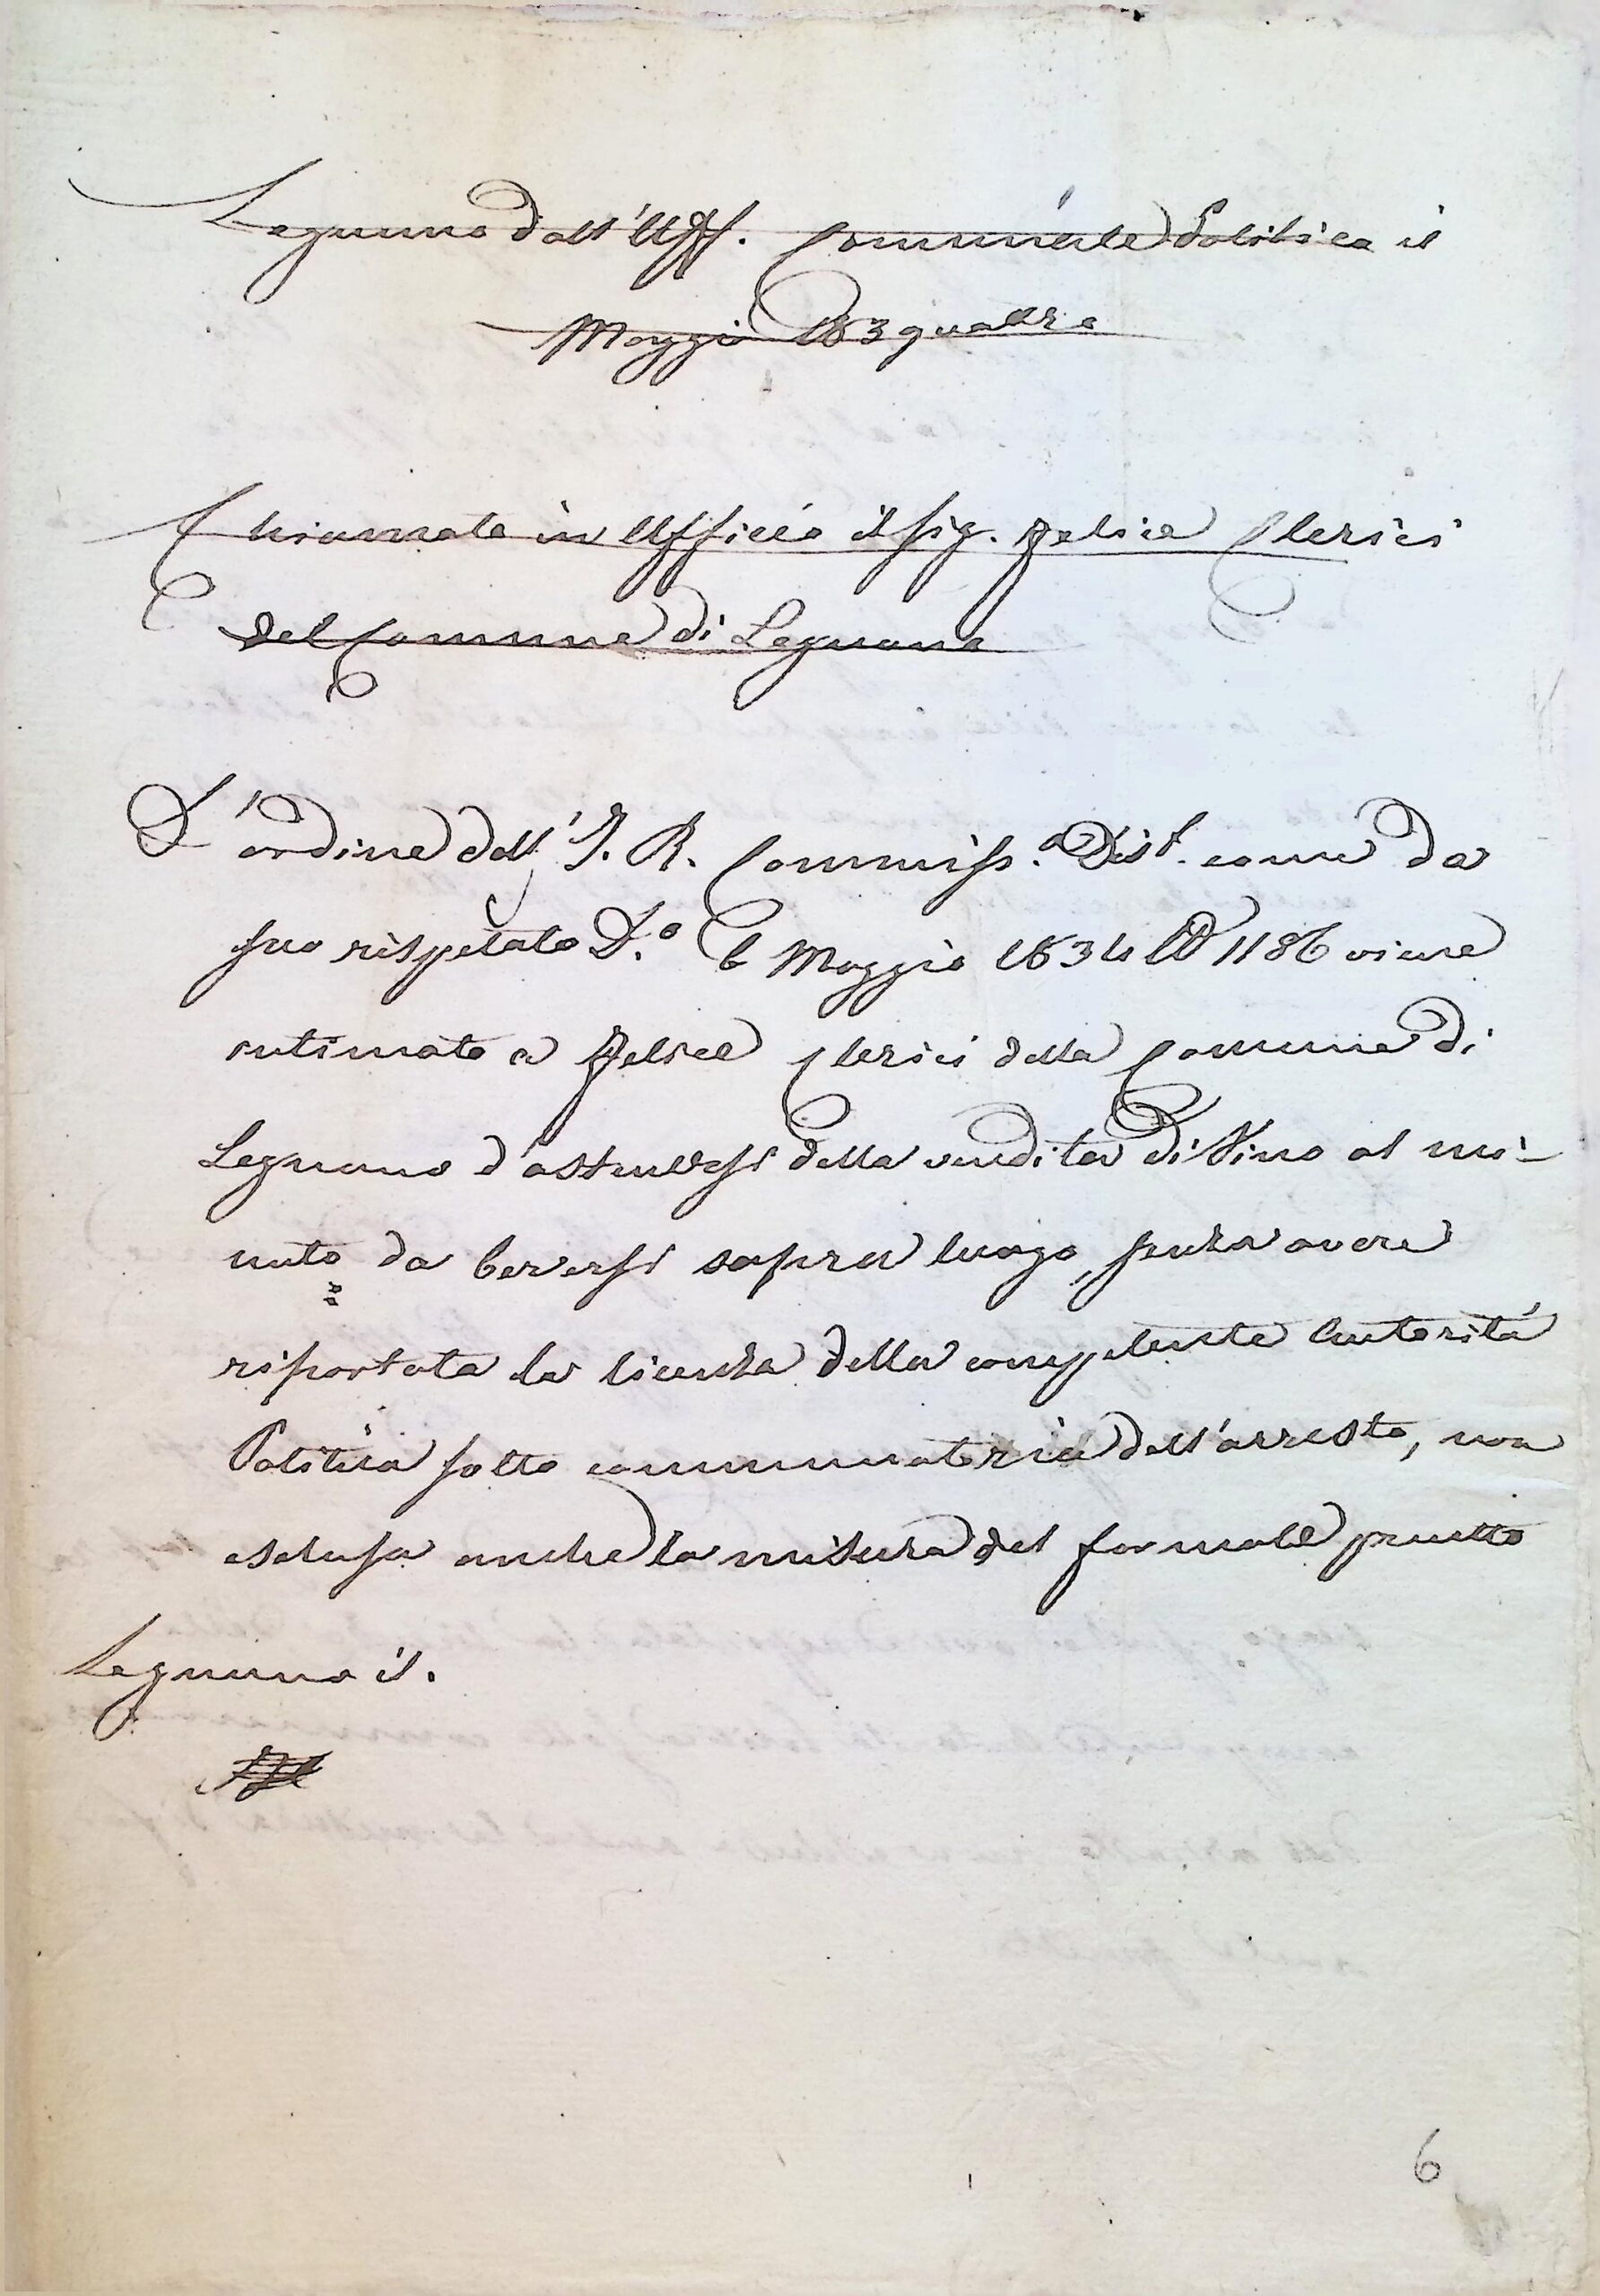 Legnano dall'Uff. Comunale Politico il
Maggio 183quattro
Chiamato in Ufficio il sig. Felice Clerici
del Comune di Legnano
L'ordine dell' I. R. Commiss.º Dist. come da
suo rispetato D.º 6 Maggio 1834 N 1186 viene
intimato a Felice Clerici della Comune di
Legnano d'astenersi della vendita di Vino al mi-
nuto da beversi sopra luogo, senza avere
riportata la licenza della competente Autorità
Politica sotto comminatoria dell'arresto, non
esclusa anche la misura del formale precetto
Legnano il.
6